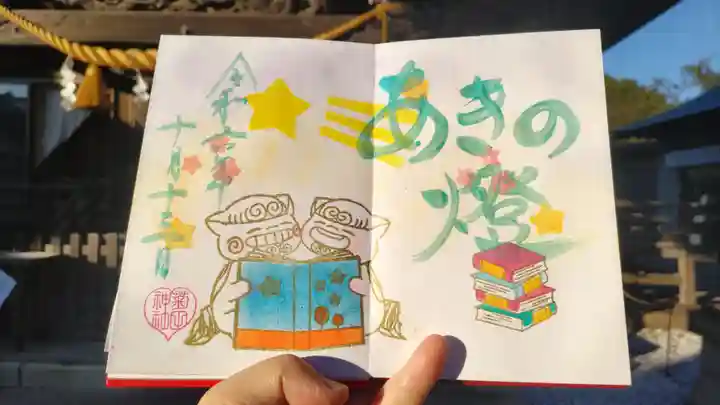 あきの
燈
令和六年
十月十三日
菊田
神社